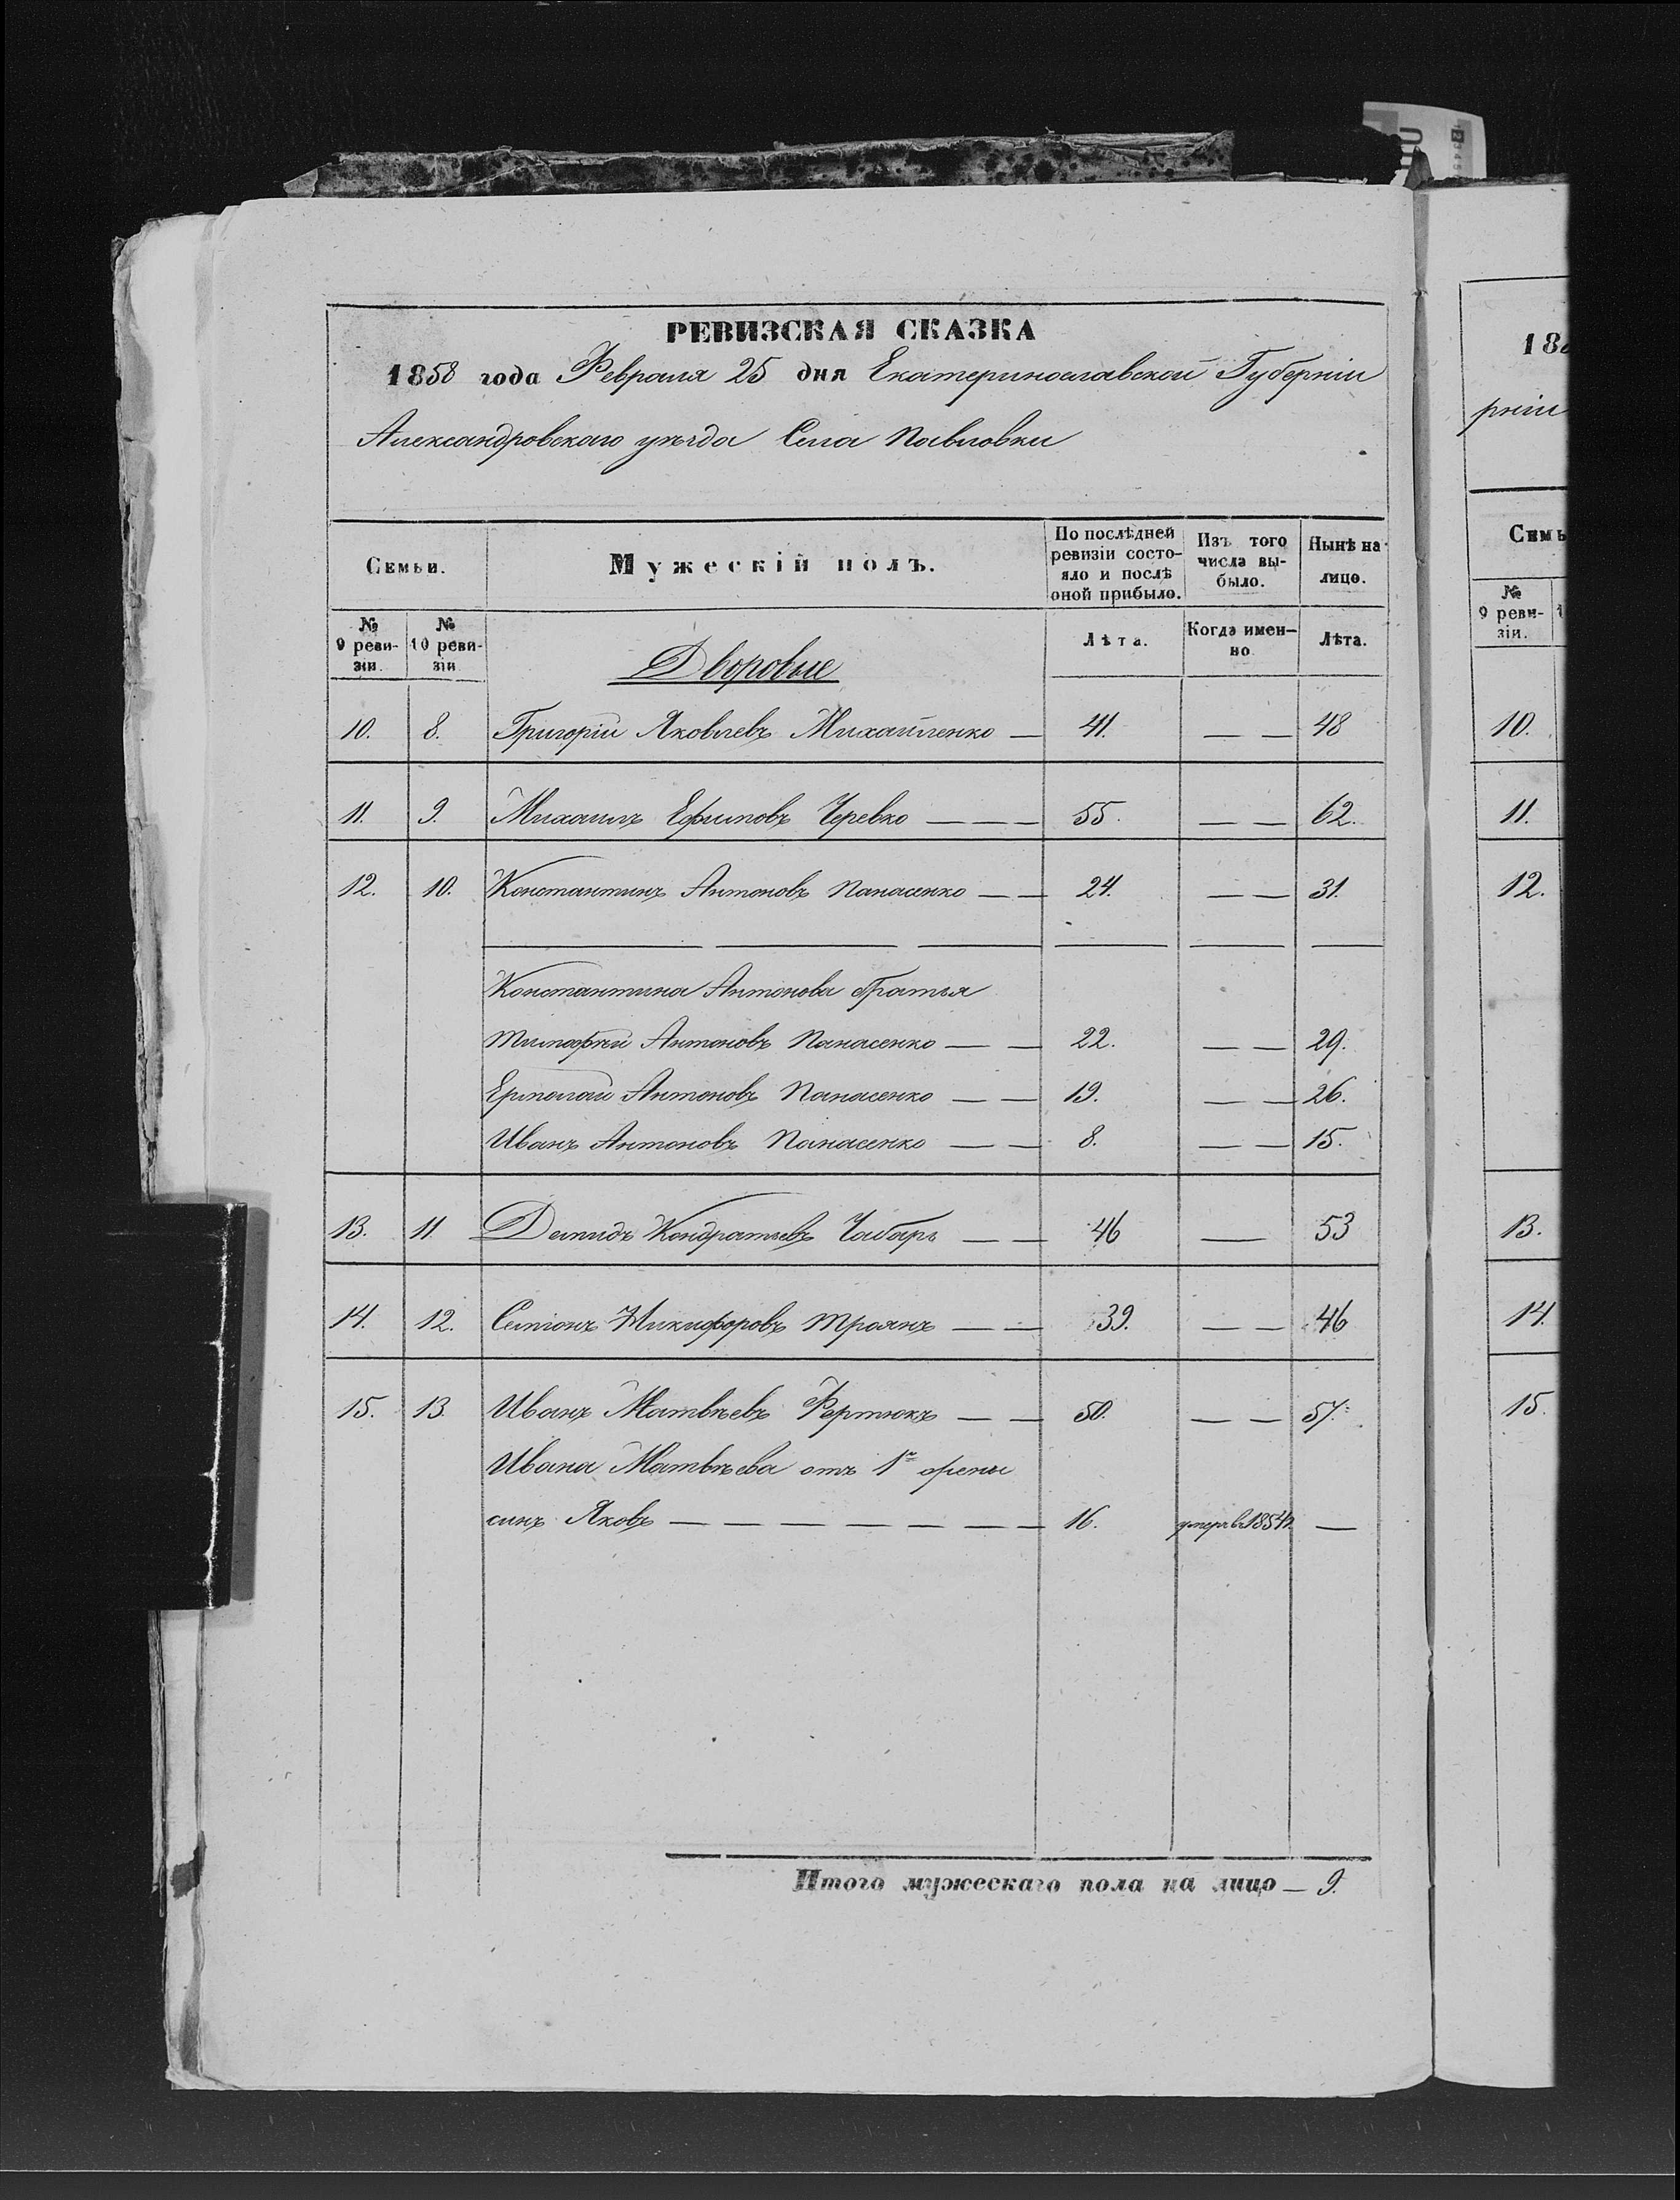 РЕВИЗСКАЯ СКАЗКА
1858 года Февраля 25 дня Екатеринославской Губерніи
Александровскаго уѣзда Села Павловки
Семьи. Мужескій полъ. По послѣдней ревизіи состояло и послѣ оной прибыло. Изъ того числа выбыло. Нынѣ на лицо.
№ 9 ревизіи. № 10 ревизіи Лѣта. Когда именно Лѣта.
Дворовые
10. 8. Григорій Яковлевъ Михайленко — 41. — — 48
11. 9. Михаилъ Ефимовъ Черевко — — — 55. — — 62.
12. 10. Константинъ Антоновъ Панасенко — — 24. — — 31.
Константина Антонова братья
Тимофей Антоновъ Панасенко — — 22. — — 29.
Ермолай Антоновъ Панасенко — — 19. — — 26.
Иванъ Антоновъ Панасенко — — 8. — — 15.
13. 11 Демидъ Кондратьевъ Чабаръ — — 46 — 53
14. 12. Семіонъ Никифоровъ Троянъ — — 39. — — 46
15. 13. Иванъ Матвѣевъ Фертюкъ — — 50. — — 57.
Ивана Матвѣева отъ 1й жены
сынъ Яковъ — — — — — — — 16. умеръ въ —
Итого мужескаго пола на лицо — 9.
18
рніи
Семь
№
9 реви-
зіи.
10.
11.
12.
13.
14.
15.